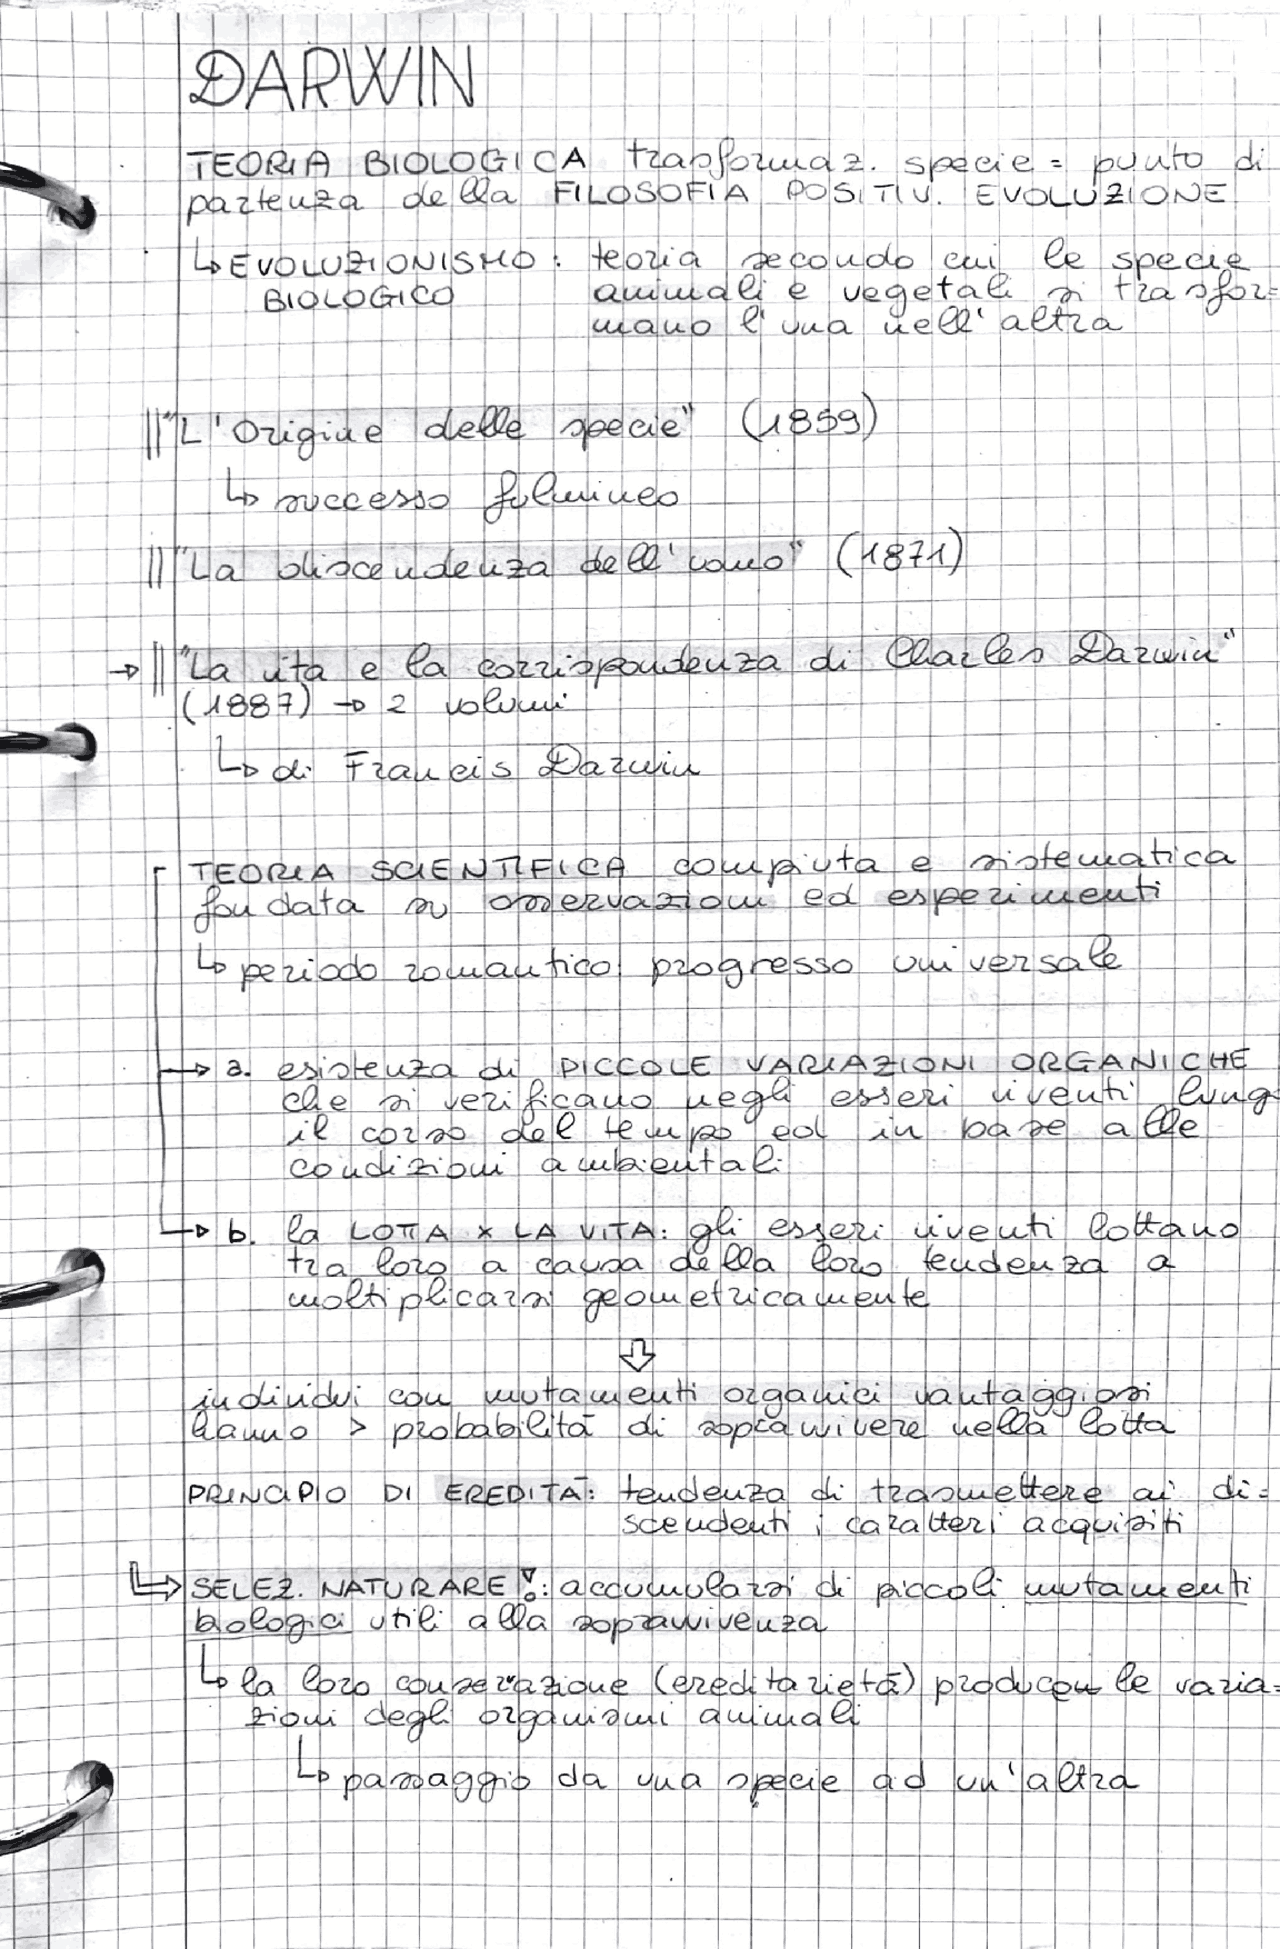 DARWIN
TEORIA BIOLOGICA trasformaz. specie = punto di
partenza della FILOSOFIA POSITIV. EVOLUZIONE
↳ EVOLUZIONISMO : teoria secondo cui le specie
BIOLOGICO animali e vegetali si trasfor=
mano l'una nell'altra
"L'Origine delle specie" (1859)
↳ successo fulmineo
"La discendenza dell'uomo" (1871)
→ "La vita e la corrispondenza di Charles Darwin"
(1887) → 2 volumi
↳ di Francis Darwin
TEORIA SCIENTIFICA compiuta e sistematica
fondata su osservazioni ed esperimenti
↳ periodo romantico: progresso universale
→ a. esistenza di PICCOLE VARIAZIONI ORGANICHE
che si verificano negli esseri viventi lung
il corso del tempo ed in base alle
condizioni ambientali
→ b. la LOTTA x LA VITA: gli esseri viventi lottano
tra loro a causa della loro tendenza a
moltiplicarsi geometricamente
⇩
individui con mutamenti organici vantaggiosi
hanno > probabilità di sopravvivere nella lotta
PRINCIPIO DI EREDITÀ: tendenza di trasmettere ai di=
scendenti i caratteri acquisiti
↳ SELEZ. NATURARE !: accumularsi di piccoli mutamenti
biologici utili alla sopravvivenza
↳ la loro conservazione (ereditarietà) producon le varia=
zioni degli organismi animali
↳ passaggio da una specie ad un'altra